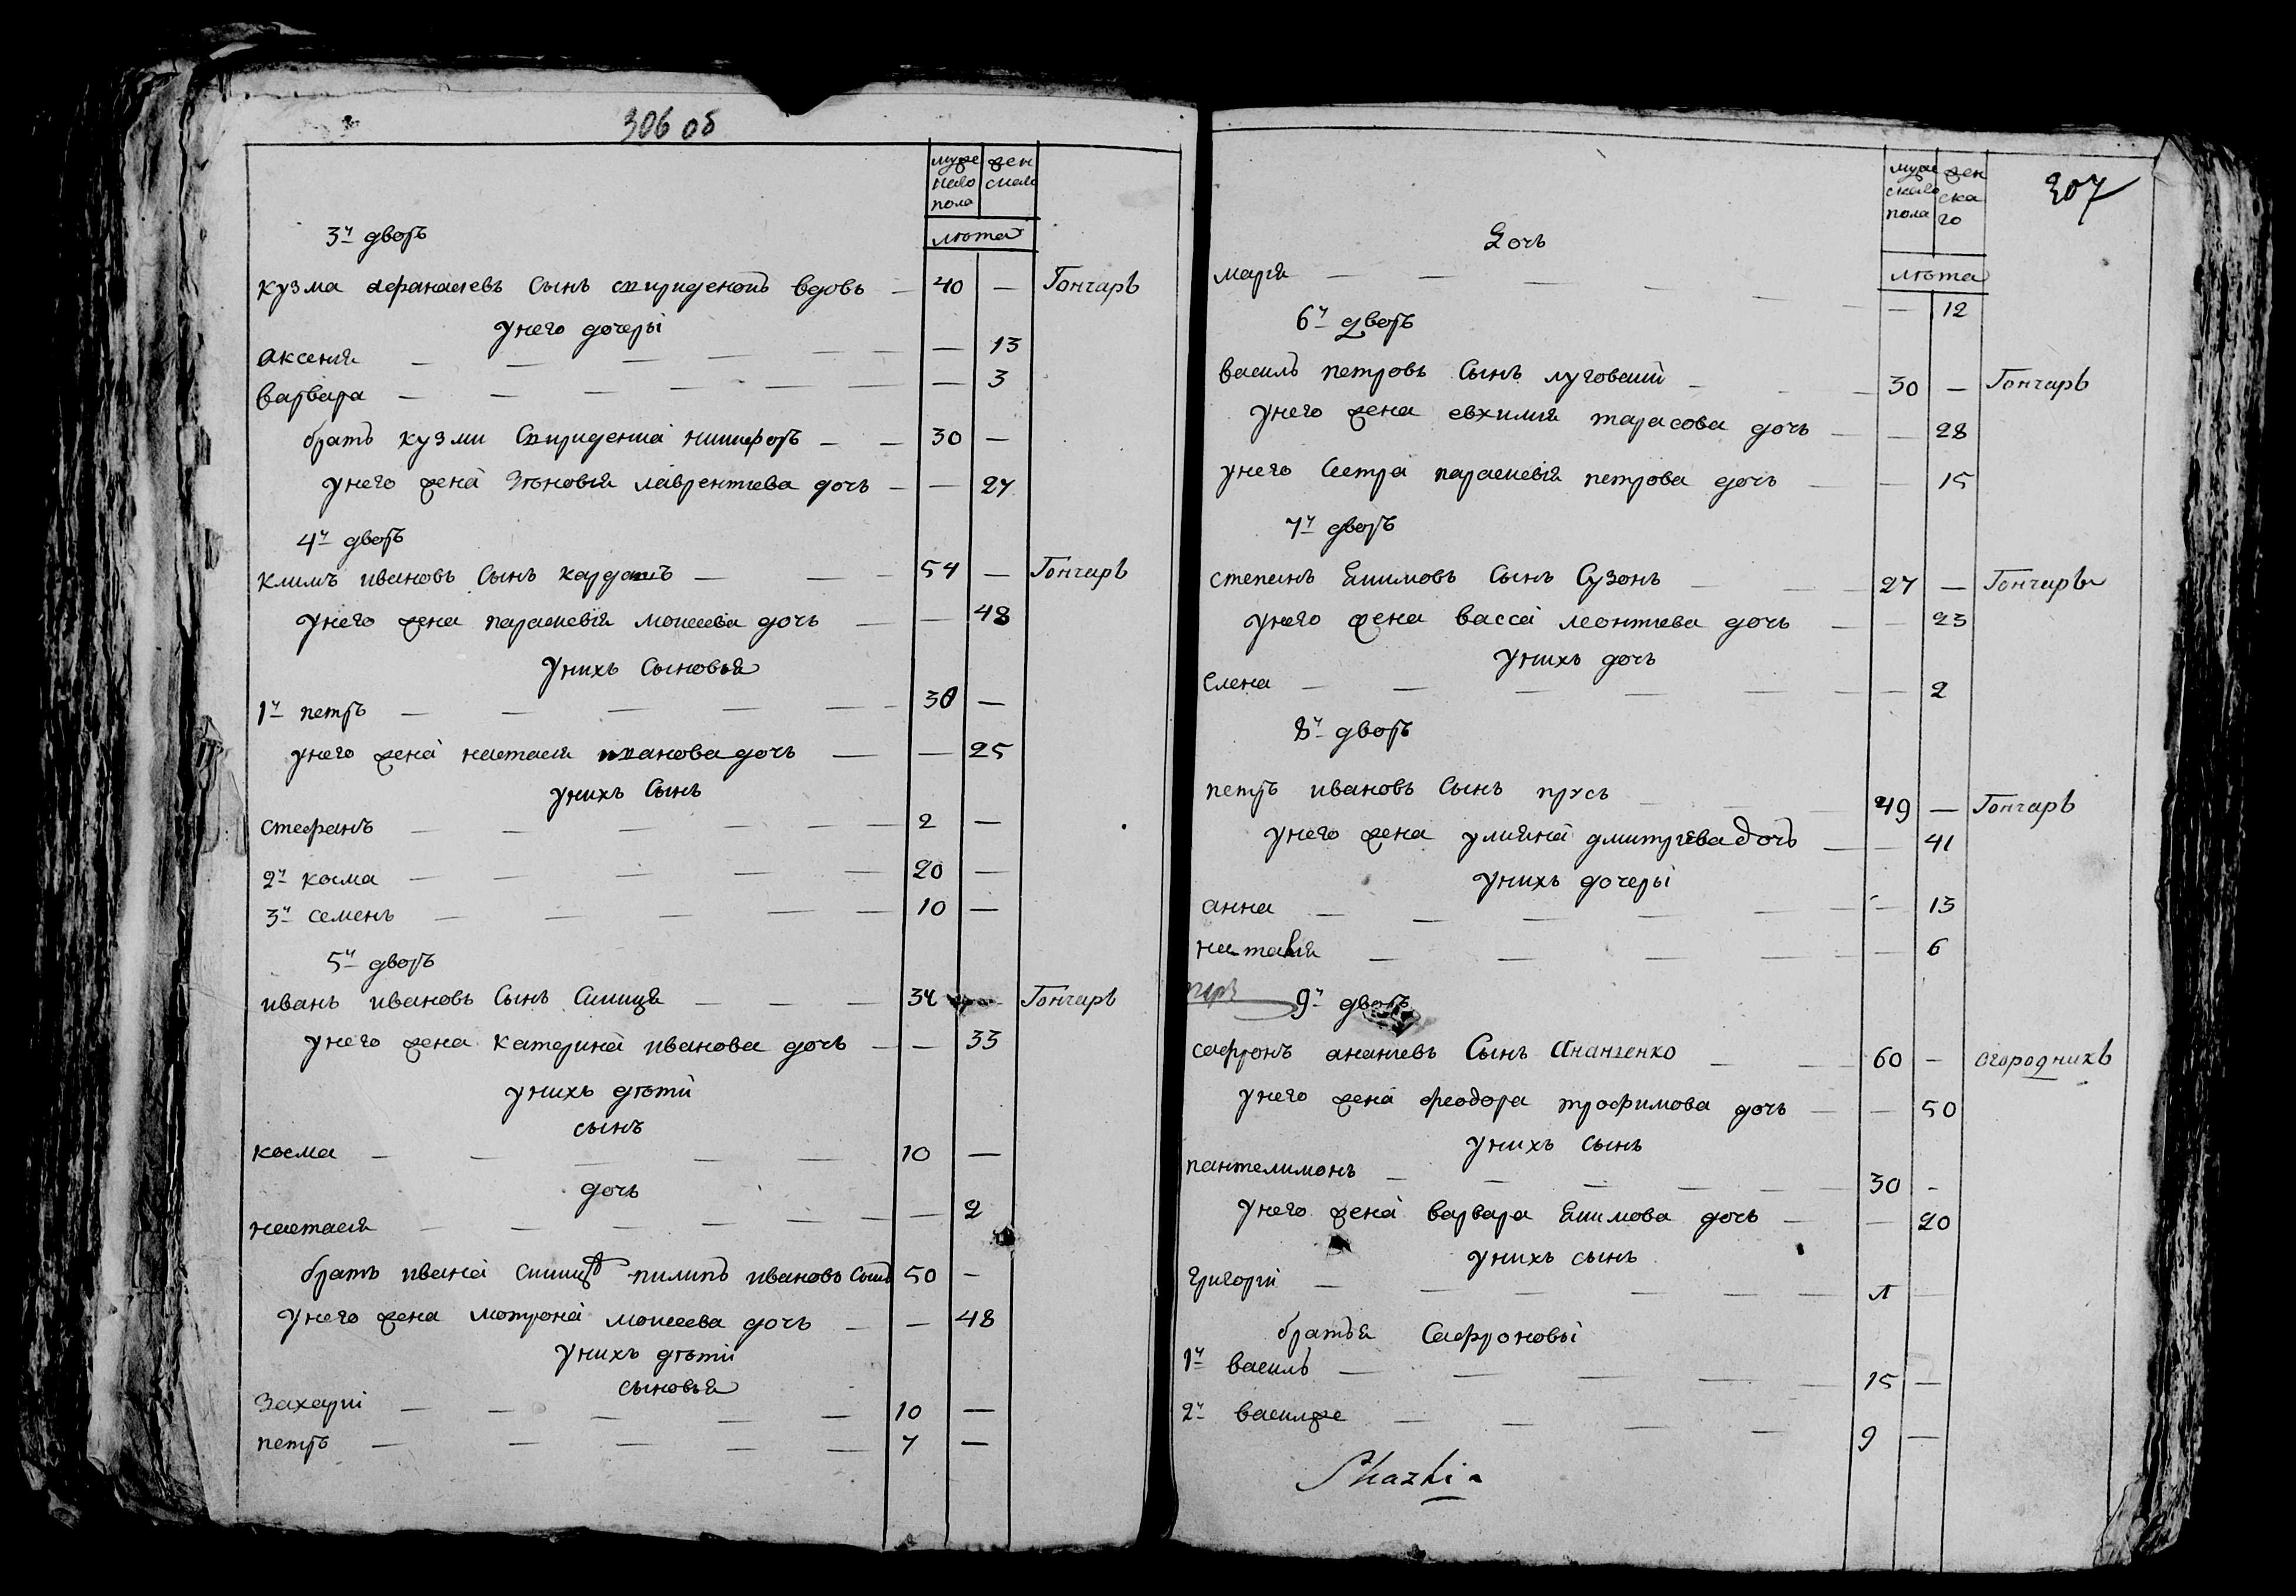 306 об
муже
скаго
пола
жен
скаго
лѣта
3й дворъ
кузма афанасиевъ Сынъ спириденокъ вдовъ — 40 — Гончаръ
унего дочері
Аксения — — 13
варвара — — 3
братъ кузми Спириденка никифоръ — 30 —
унего жена Зѣновія лаврентиева дочь — — 27
4й дворъ
климъ ивановъ Сынъ кардашъ — 54 — Гончаръ
унего жена параскевія моисеева дочь — — 48
унихъ Сыновья
1й петръ — 30 —
унего жена настасия иванова дочь — — 25
унихъ Сынъ
стефанъ — 2 —
2й косма — 20 —
3й семенъ — 10 —
5й дворъ
иванъ ивановъ Сынъ Синица — 34 — Гончаръ
унего жена катерина иванова дочь — — 33
унихъ дѣти
сынъ
косма — 10 —
дочь
настасия — — 2
братъ ивана синицы пилипъ ивановъ Сынъ 50 —
унего жена мотрона моисеева дочь — — 48
унихъ дѣти
сыновья
Захарій — 10 —
петръ — 7 —
307
муже
скаго
пола
жен
ска
го
лѣта
Дочь
мария — — 12
6й дворъ
василь петровъ Сынъ луговский — 30 — Гончаръ
унего жена евхимия тарасова дочь — — 28
унего Сестра параскевія петрова дочь — — 15
7й дворъ
степанъ Екимовъ Сынъ Сузонъ — 27 — Гончаръ
унего жена васса леонтиева дочь — — 23
унихъ дочь
Елена — — 2
8й дворъ
петръ ивановъ Сынъ прусъ — 49 — Гончаръ
унего жена улияна дмитриева дочь — — 41
унихъ дочері
анна — — 13
наталия — — 6
9й дворъ
сафронъ ананиевъ Сынъ Ананѣенко — 60 — огородникъ
унего жена феодора трофимова дочь — — 50
унихъ сынъ
пантелимонъ — 30 -
унего жена варвара Екимова дочь — — 20
унихъ сынъ
григорий — л —
братья Сафроновы
1й василь — 15 —
2й василже — 9 —